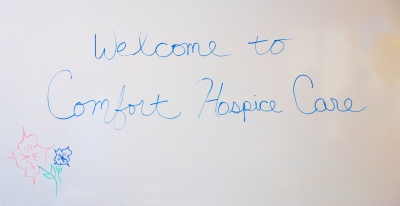 Welcome to
Comfort Hospice Care